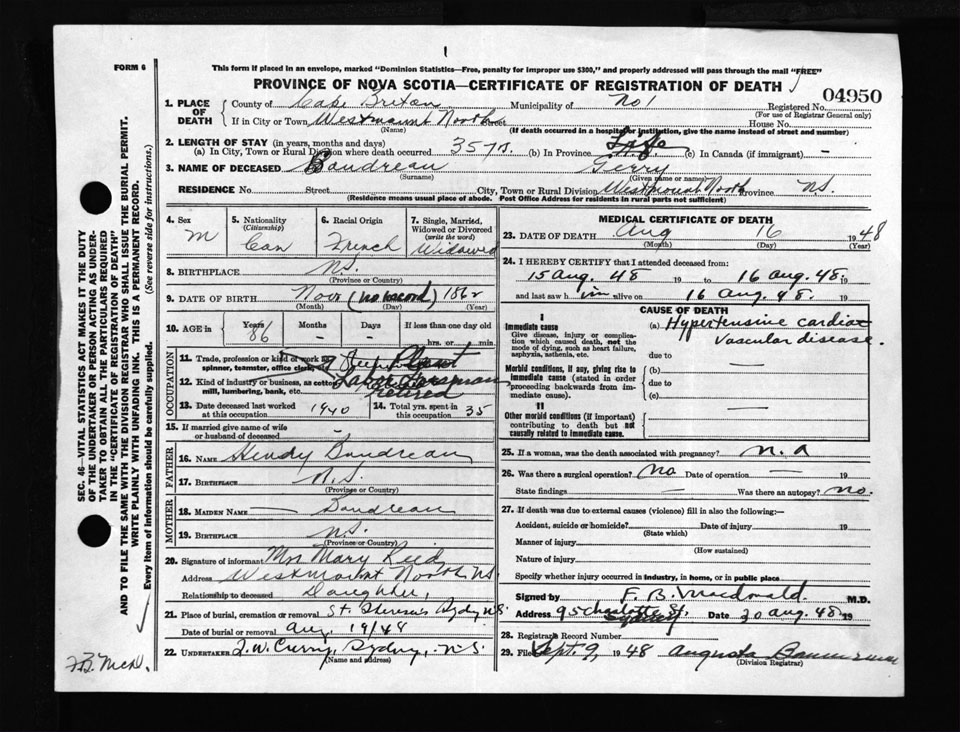 FORM 6
This form if placed in an envelope, marked "Dominion Statistics—Free, penalty for improper use $300," and properly addressed will pass through the mail "FREE"
PROVINCE OF NOVA SCOTIA—CERTIFICATE OF REGISTRATION OF DEATH
04950
1. PLACE OF DEATH
County of Cape Breton Municipality of No 1 Registered No.
(For use of Registrar General only)
If in City or Town Westmount North Street House No.
(Name) (If death occurred in a hospital or institution, give the name instead of street and number)
2. LENGTH OF STAY (in years, months and days)
(a) In City, Town or Rural Division where death occurred 35 yrs. (b) In Province Life (c) In Canada (if immigrant) —
3. NAME OF DECEASED Boudreau Gerry
(Surname) (Given name or names)
RESIDENCE No. Street City, Town or Rural Division Westmount North Province N.S.
(Residence means usual place of abode. Post Office Address for residents in rural parts not sufficient)
4. Sex M
5. Nationality (Citizenship) Can
6. Racial Origin French
7. Single, Married, Widowed or Divorced (write the word) Widowed
8. BIRTHPLACE N.S.
(Province or Country)
9. DATE OF BIRTH Nov (no record) 1862
(Month) (Day) (Year)
10. AGE in Years 86 Months — Days — If less than one day old
hrs. or min.
OCCUPATION
11. Trade, profession or kind of work as spinner, teamster, office clerk, Plant
12. Kind of industry or business, as cotton mill, lumbering, bank, etc. retired
13. Date deceased last worked at this occupation 1940
14. Total yrs. spent in this occupation 35
15. If married give name of wife or husband of deceased —
FATHER
16. NAME Hendy Boudreau
17. BIRTHPLACE N.S.
(Province or Country)
MOTHER
18. MAIDEN NAME — Boudreau
19. BIRTHPLACE N.S.
(Province or Country)
20. Signature of informant Mrs Mary Reid
Address Westmount North, N.S.
Relationship to deceased Daughter,
21. Place of burial, cremation or removal St. Sydney N.S.
Date of burial or removal Aug, 19/48
22. UNDERTAKER J.W. Curry, Sydney, N.S.
(Name and address)
MEDICAL CERTIFICATE OF DEATH
23. DATE OF DEATH Aug 16 1948
(Month) (Day) (Year)
24. I HEREBY CERTIFY that I attended deceased from:
15 Aug. 48 19 to 16 Aug. 48. 19
and last saw him alive on 16 Aug. 48. 19
CAUSE OF DEATH
I
Immediate cause
Give disease, injury or complication which caused death, not the mode of dying, such as heart failure, asphyxia, asthenia, etc.
(a) Hypertensive cardiac
vascular disease.
due to
Morbid conditions, if any, giving rise to immediate cause (stated in order proceeding backwards from immediate cause).
(b) —
due to
(c)
II
Other morbid conditions (if important) contributing to death but not causally related to immediate cause.
25. If a woman, was the death associated with pregnancy? n.a
26. Was there a surgical operation? No Date of operation — 19
State findings — Was there an autopsy? no.
27. If death was due to external causes (violence) fill in also the following:—
Accident, suicide or homicide? Date of injury 19
(State which)
Manner of injury
(How sustained)
Nature of injury
Specify whether injury occurred in industry, in home, or in public place
Signed by F. B. Macdonald M.D.
Address 95 Charlotte St. Sydney Date 30 Aug. 48 19
28. Registrar's Record Number
29. Filed Sept. 9, 1948 Augusta
(Division Registrar)
SEC. 46—VITAL STATISTICS ACT MAKES IT THE DUTY
OF THE UNDERTAKER OR PERSON ACTING AS UNDERTAKER
TO OBTAIN ALL THE PARTICULARS REQUIRED
IN THE "CERTIFICATE OF REGISTRATION OF DEATH"
AND TO FILE THE SAME WITH THE DIVISION REGISTRAR WHO SHALL ISSUE THE BURIAL PERMIT.
WRITE PLAINLY WITH UNFADING INK. THIS IS A PERMANENT RECORD.
Every item of information should be carefully supplied. (See reverse side for instructions.)
F.B. McD.